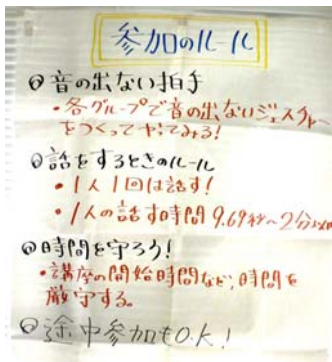 参加のルール
◎音の出ない拍手
・各グループで音の出ないジェスチャー
をつくってやってみる!
◎話をするときのルール
・1人1回は話す!
・1人の話す時間 9.69秒〜2分以内
◎時間を守ろう!
・講座の開始時間など、時間を
厳守する。
◎途中参加もO.K!